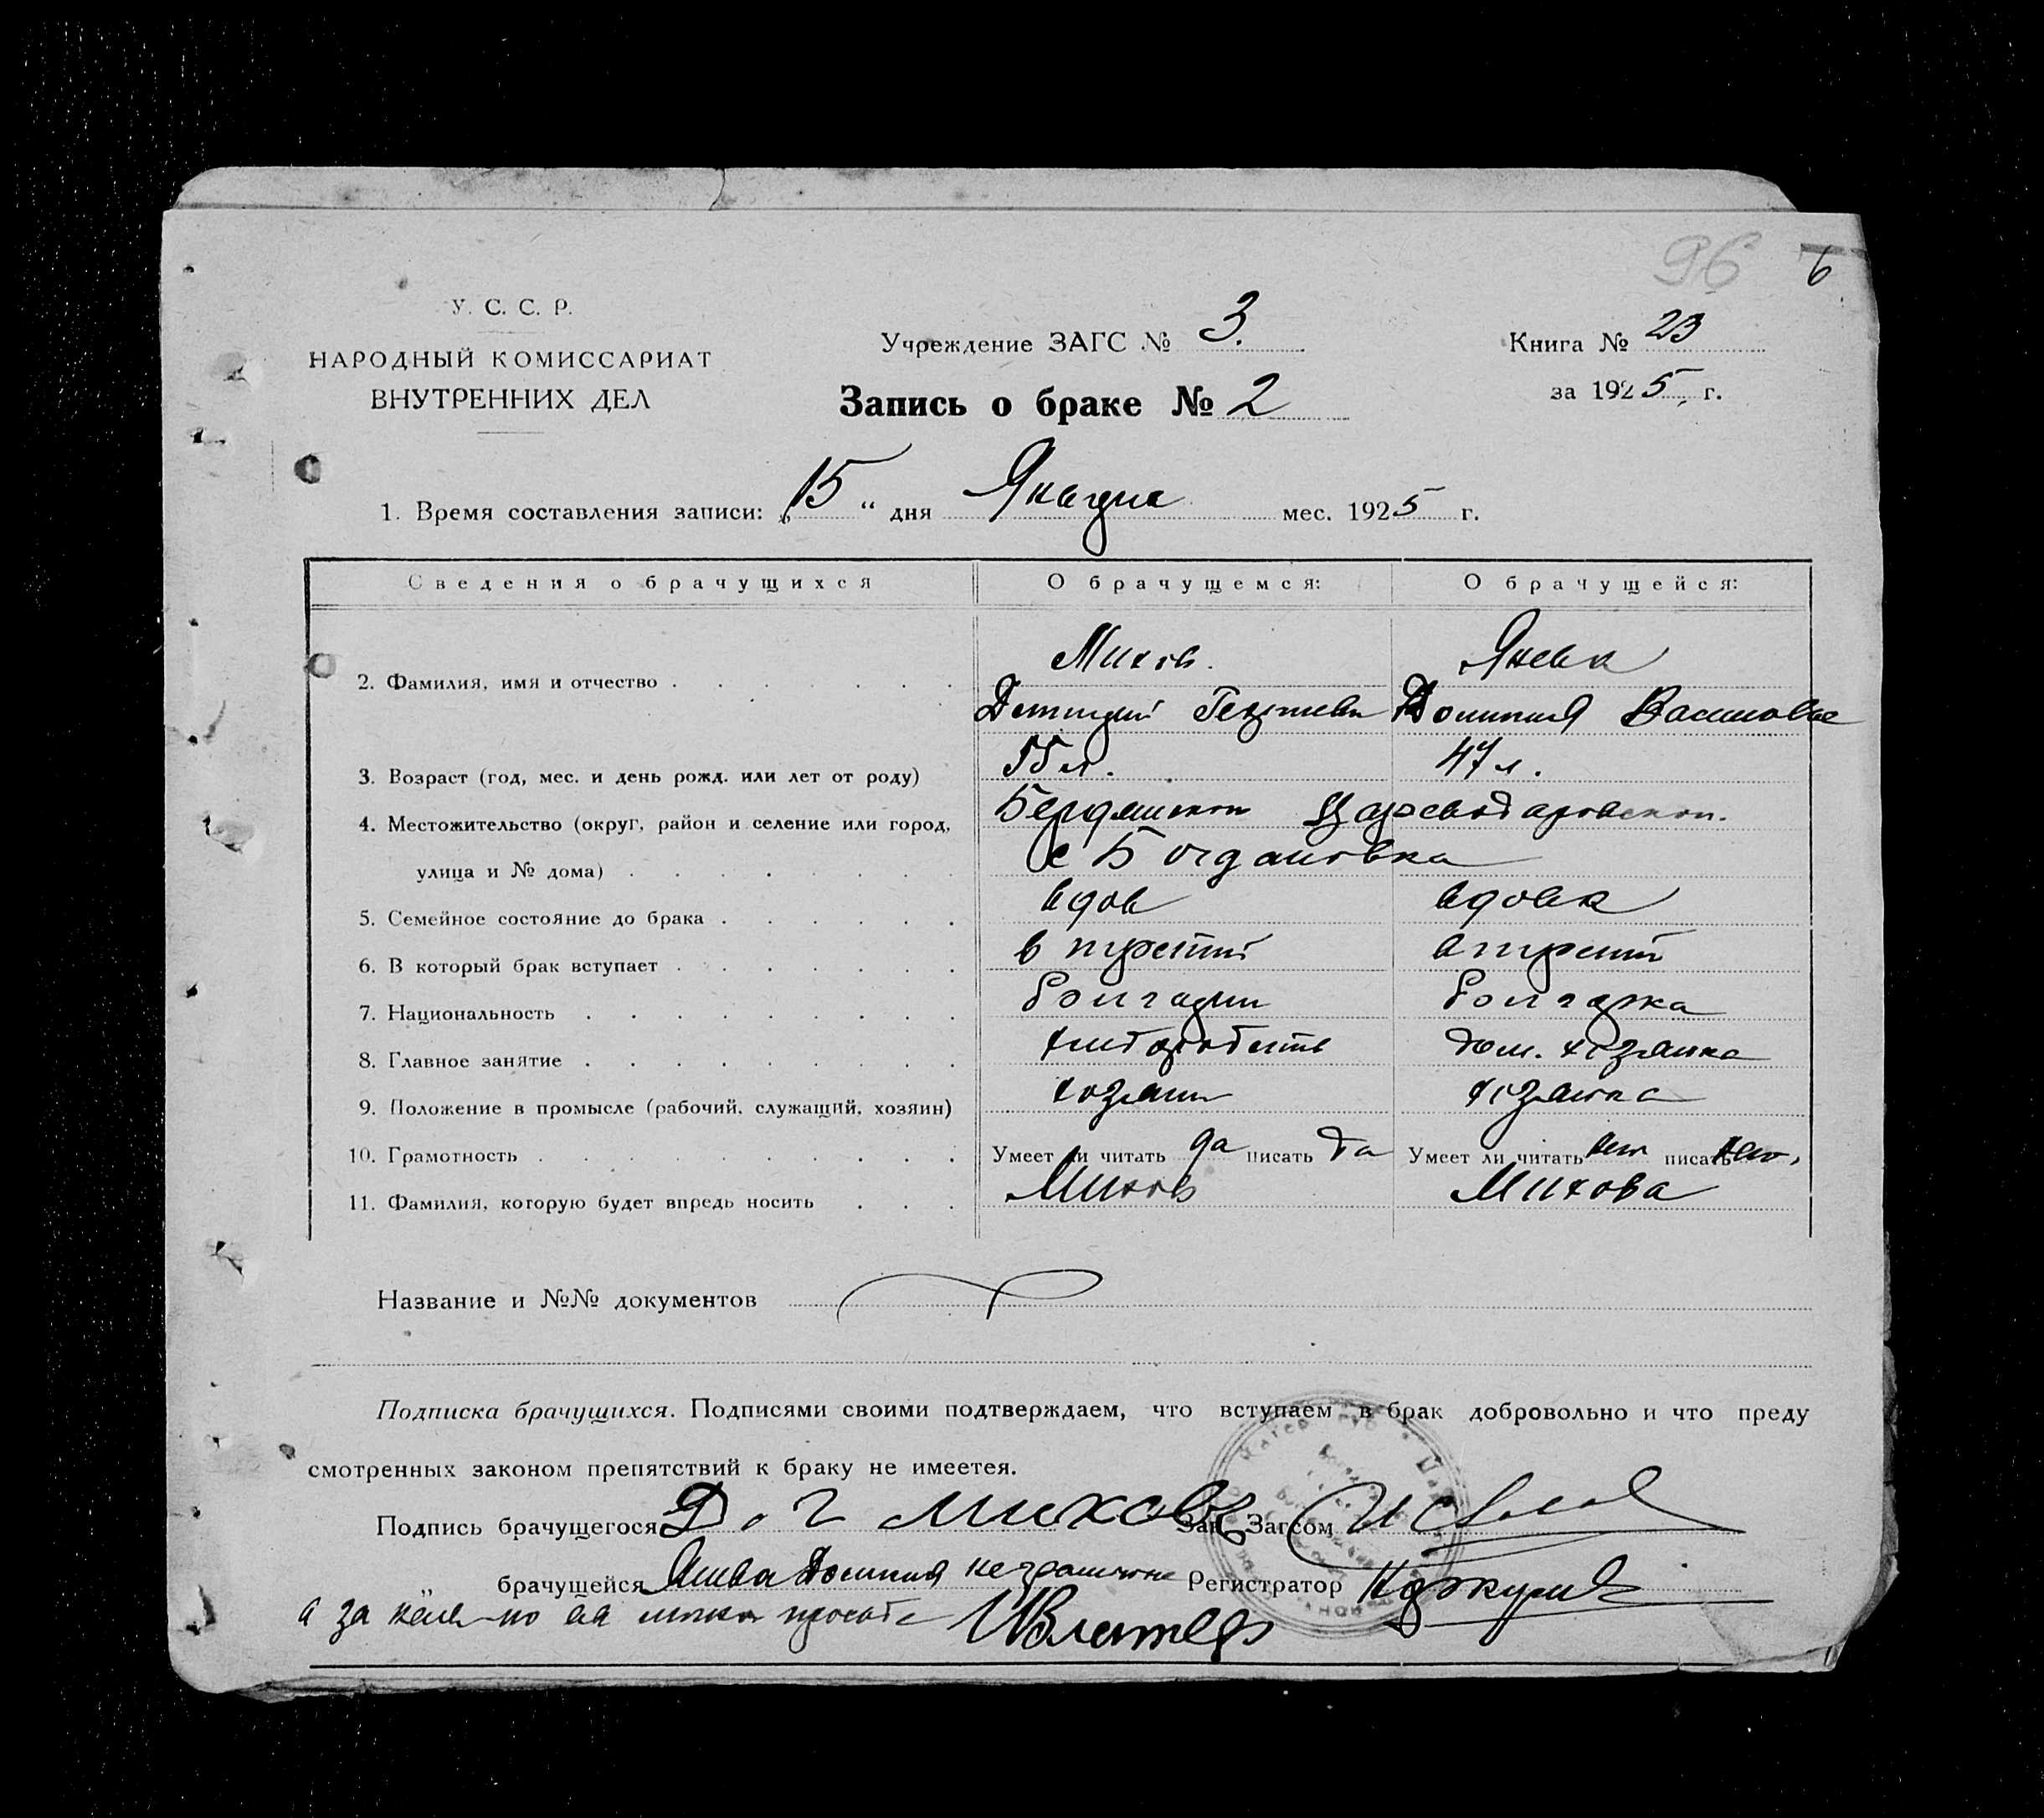 96 6
У. С. С. Р.
НАРОДНЫЙ КОМИССАРИАТ
ВНУТРЕННИХ ДЕЛ
Учреждение ЗАГС № 3.
Книга № 23
Запись о браке № 2
за 1925, г.
1. Время составления записи: „15“ дня Января мес. 1925 г.
Сведения о брачущихся О брачущемся: О брачущейся:
Михов. Янева
2. Фамилия, имя и отчество
Дмитрий Георгиев Домникия Васильевна
3. Возраст (год, мес. и день рожд. или лет от роду) 55 л. 47 л.
4. Местожительство (округ, район и селение или город, Бердянском Цареводаровском.
улица и № дома) с Богдановка
5. Семейное состояние до брака вдов вдова
6. В который брак вступает в третий в третий
7. Национальность болгарин болгарка
8. Главное занятие хлебороб дом. хозяйка
9. Положение в промысле (рабочий, служащий, хозяин) хозяин хозяйка
10. Грамотность Умеет ли читать да писать да Умеет ли читать нет писать нет,
11. Фамилия, которую будет впредь носить Михов Михова
Название и №№ документов
Подписка брачущихся. Подписями своими подтверждаем, что вступаем в брак добровольно и что преду
смотренных законом препятствий к браку не имеетея.
Подпись брачущегося Д. Г Михов Зав. Загсом
„ брачущейся Янева Домникия неграмотна Регистратор
а за нее по ея просьбе